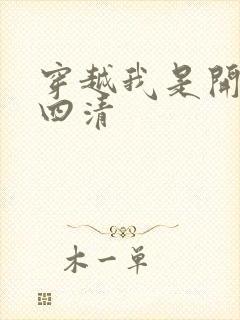 穿越我是開
四清
木一单